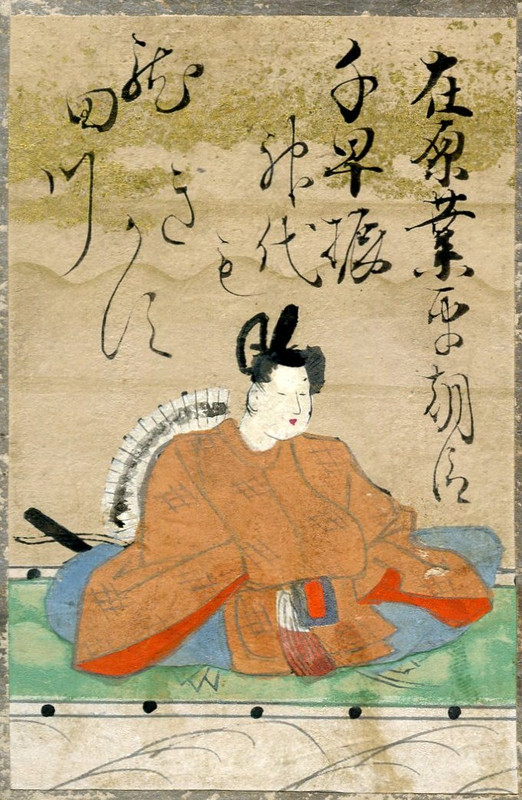 在原業平朝臣
千早振
神代
も
きかす
龍
田川